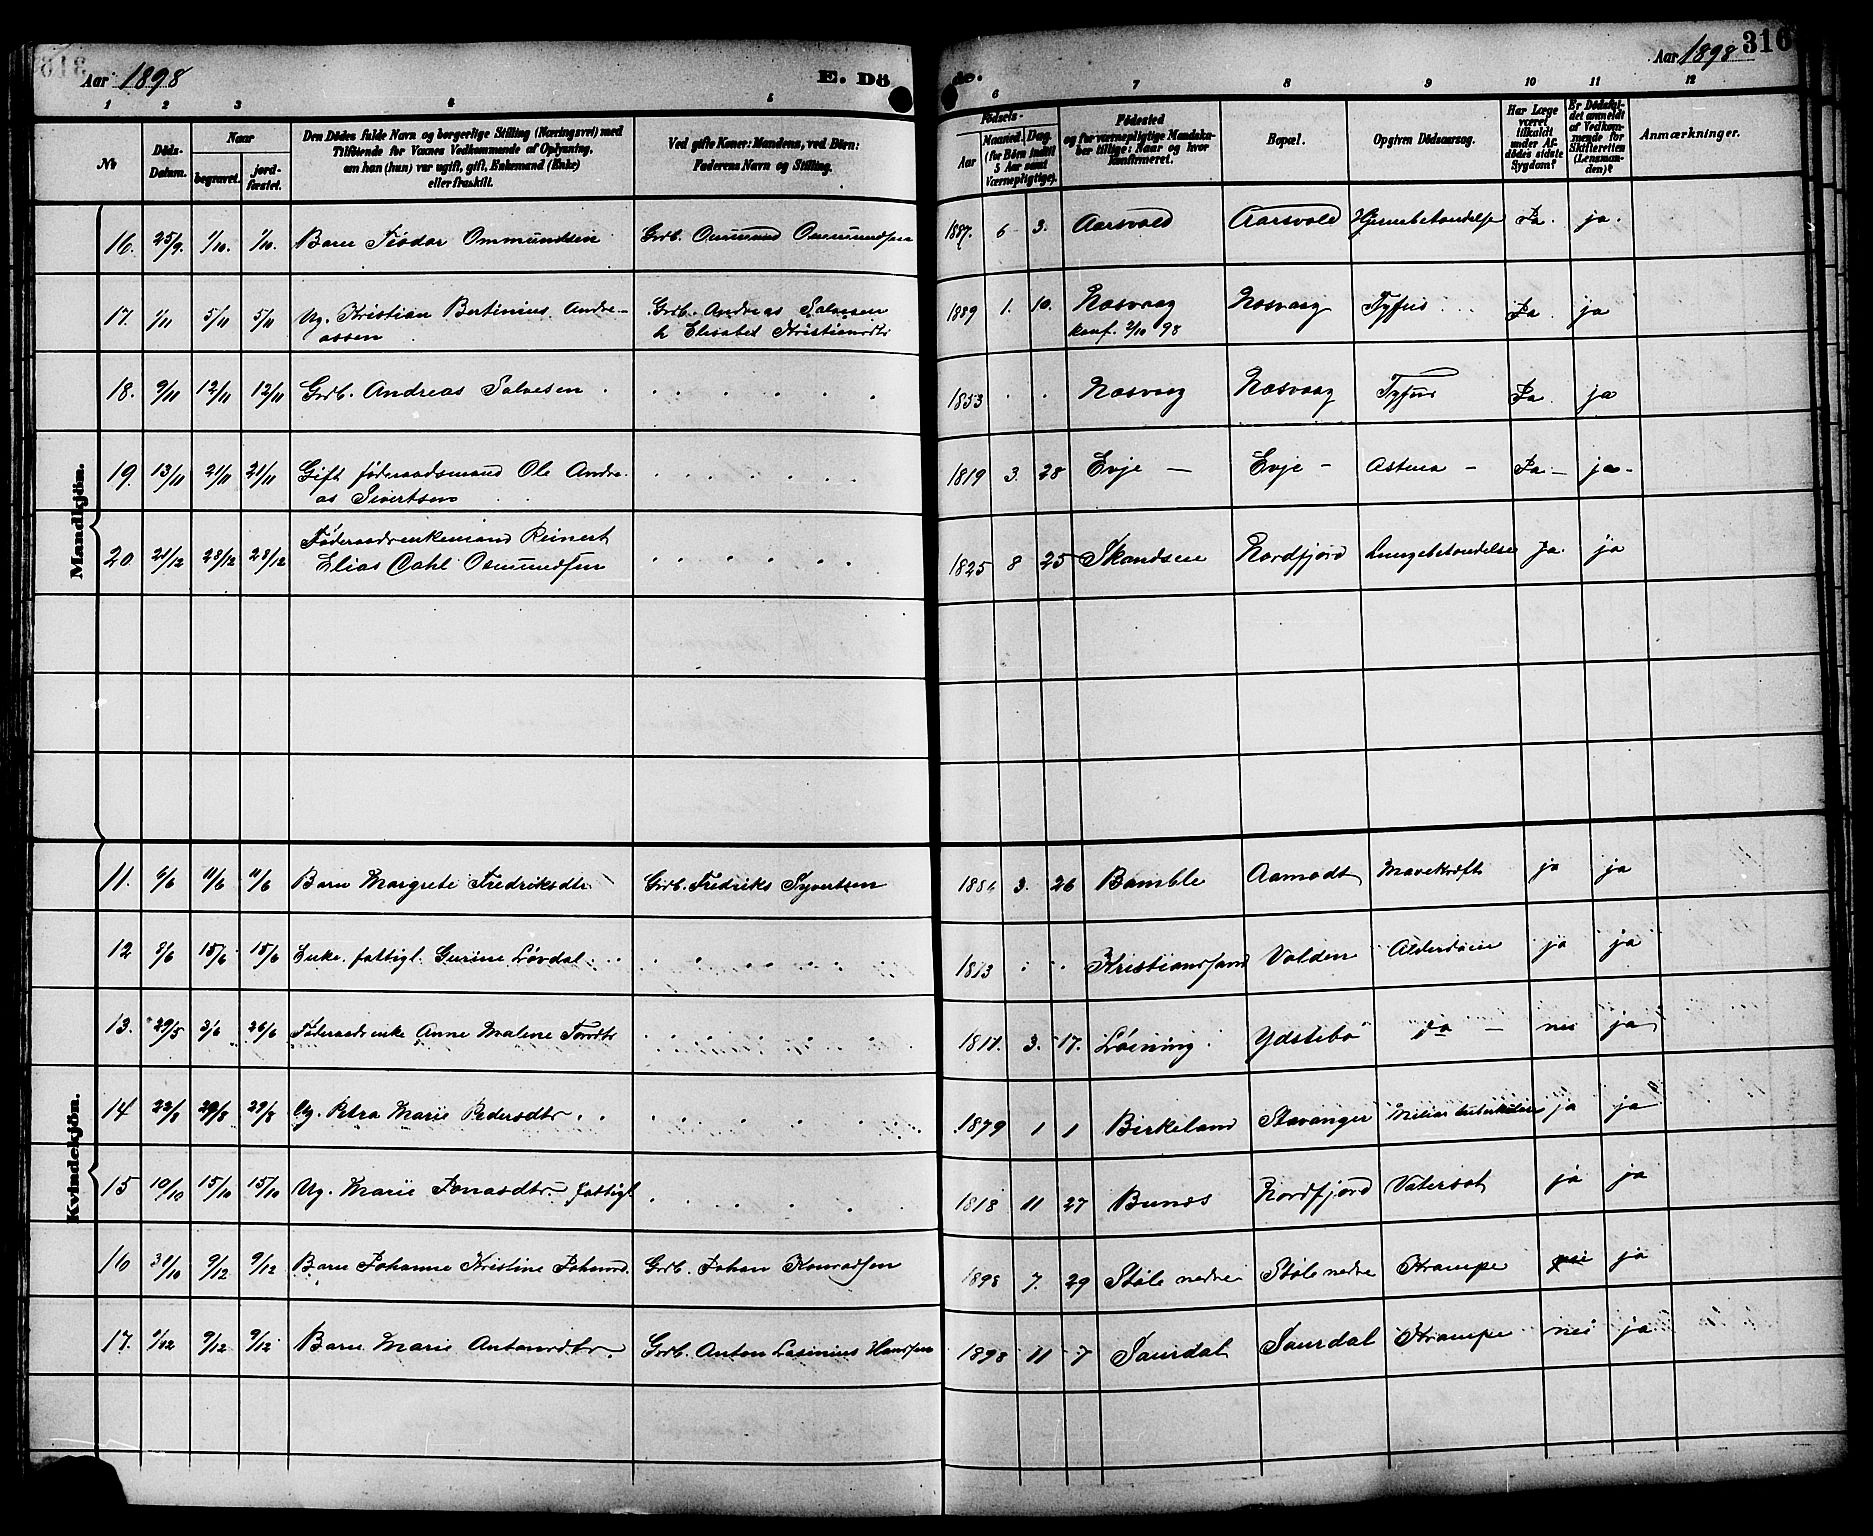 Aar 1898 E. Dö de. Aar 1898 316
1 2 3 4 5 6 7 8 9 10 11 12
№
Døds-Datum.
Naar
begravet.
jord-fæstet.
Den Dödes fulde Navn og borgerlige Stilling (Næringsvei) med
Tilföiende for Voxnes Vedkommende af Oplysning,
om han (hun) var ugift, gift, Enkemand (Enke)
eller fraskilt.
Ved gifte Koner: Mandens, ved Börn:
Faderens Navn og Stilling.
Födsels-
Aar
Maaned. Dag.
(for Börn indtil
5 Aar samt
Værnepligtige).
Födested
og for værnepligtige Mandskaber tillige: Naar og hvor
konfirmeret.
Bopæl.
Opgiven Dödsaarsag.
Har Læge
været
tilkaldt
under Afdödes sidste
Sygdom?
Er Dödsfaldet anmeldt
af Vedkommende for
Skifteretten
(Lensmanden)?
Anmærkninger.
Mandkjön.
16. 25/9. 1/10. 1/10. Barn Teodor Ommundsen Grdb. Ommund Ommundsen 1887. 6 3. Aarsvold Aarsvold Hjernebetændelse Ja. ja.
17. 1/11 5/11 5/11 Ug. Kristian Bertinius Andre-
assen Grdb. Andreas Salvesen
h Elisabet Kristiansdtr 1889 1. 10. Næsvaag
konf. 2/10 98 Næsvaag Tyfus Ja. ja
18. 9/11 12/11 12/11 Grdb. Andreas Salvesen 1853 Næsvaag Næsvaag Tyfus Ja. ja
19. 13/11 21/11 21/11 Gift föderaadsmand Ole Andre-
as Sivertsen 1819 3. 28 Evje — Evje - Astma - Ja - ja -
20 21/12 28/12 28/12 Föderaadsenkemand Reinert
Elias Dahl Osmundsen 1825 8 25 Skandsen Nordfjord Lungebetændelse Ja. ja
Kvindekjön.
11. 6/6 11/6 11/6 Barn Margrete Fredriksdtr Grdb. Fredriks Syvertsen 3. 26 Bamble Aamodt Mavekræft ja ja
12 8/6 15/6 15/6 Enke. fattigl. Gurine Lövdal 1813 Kristianssand Volden ja ja
13. 29/5 3/6 26/6 Föderaadsenke Anne Malene 3. 17. Löining Ydstebö do — nei ja
14 22/8 29/8 29/8 Ug. Petra Marie Pedersdtr. 1879 1 1 Birkeland Stavanger Miliærtuberkulose ja ja
15 10/10 15/10 15/10 Ug. Marie Jonasdtr. fattigl 1818 11 27 Bunes Nordfjord Vatersot ja ja
16 31/10 9/12 9/12 Barn Johanne Kristine Johansd. Grdb. Johan Konradsen 1898 7. 29 Støle nedre Støle nedre Krampe nei ja
17. 1/12 9/12 9/12 Barn Marie Antonsdtr. Grdb. Anton Hansen 1898 11 7 Saurdal Saurdal Krampe nei ja